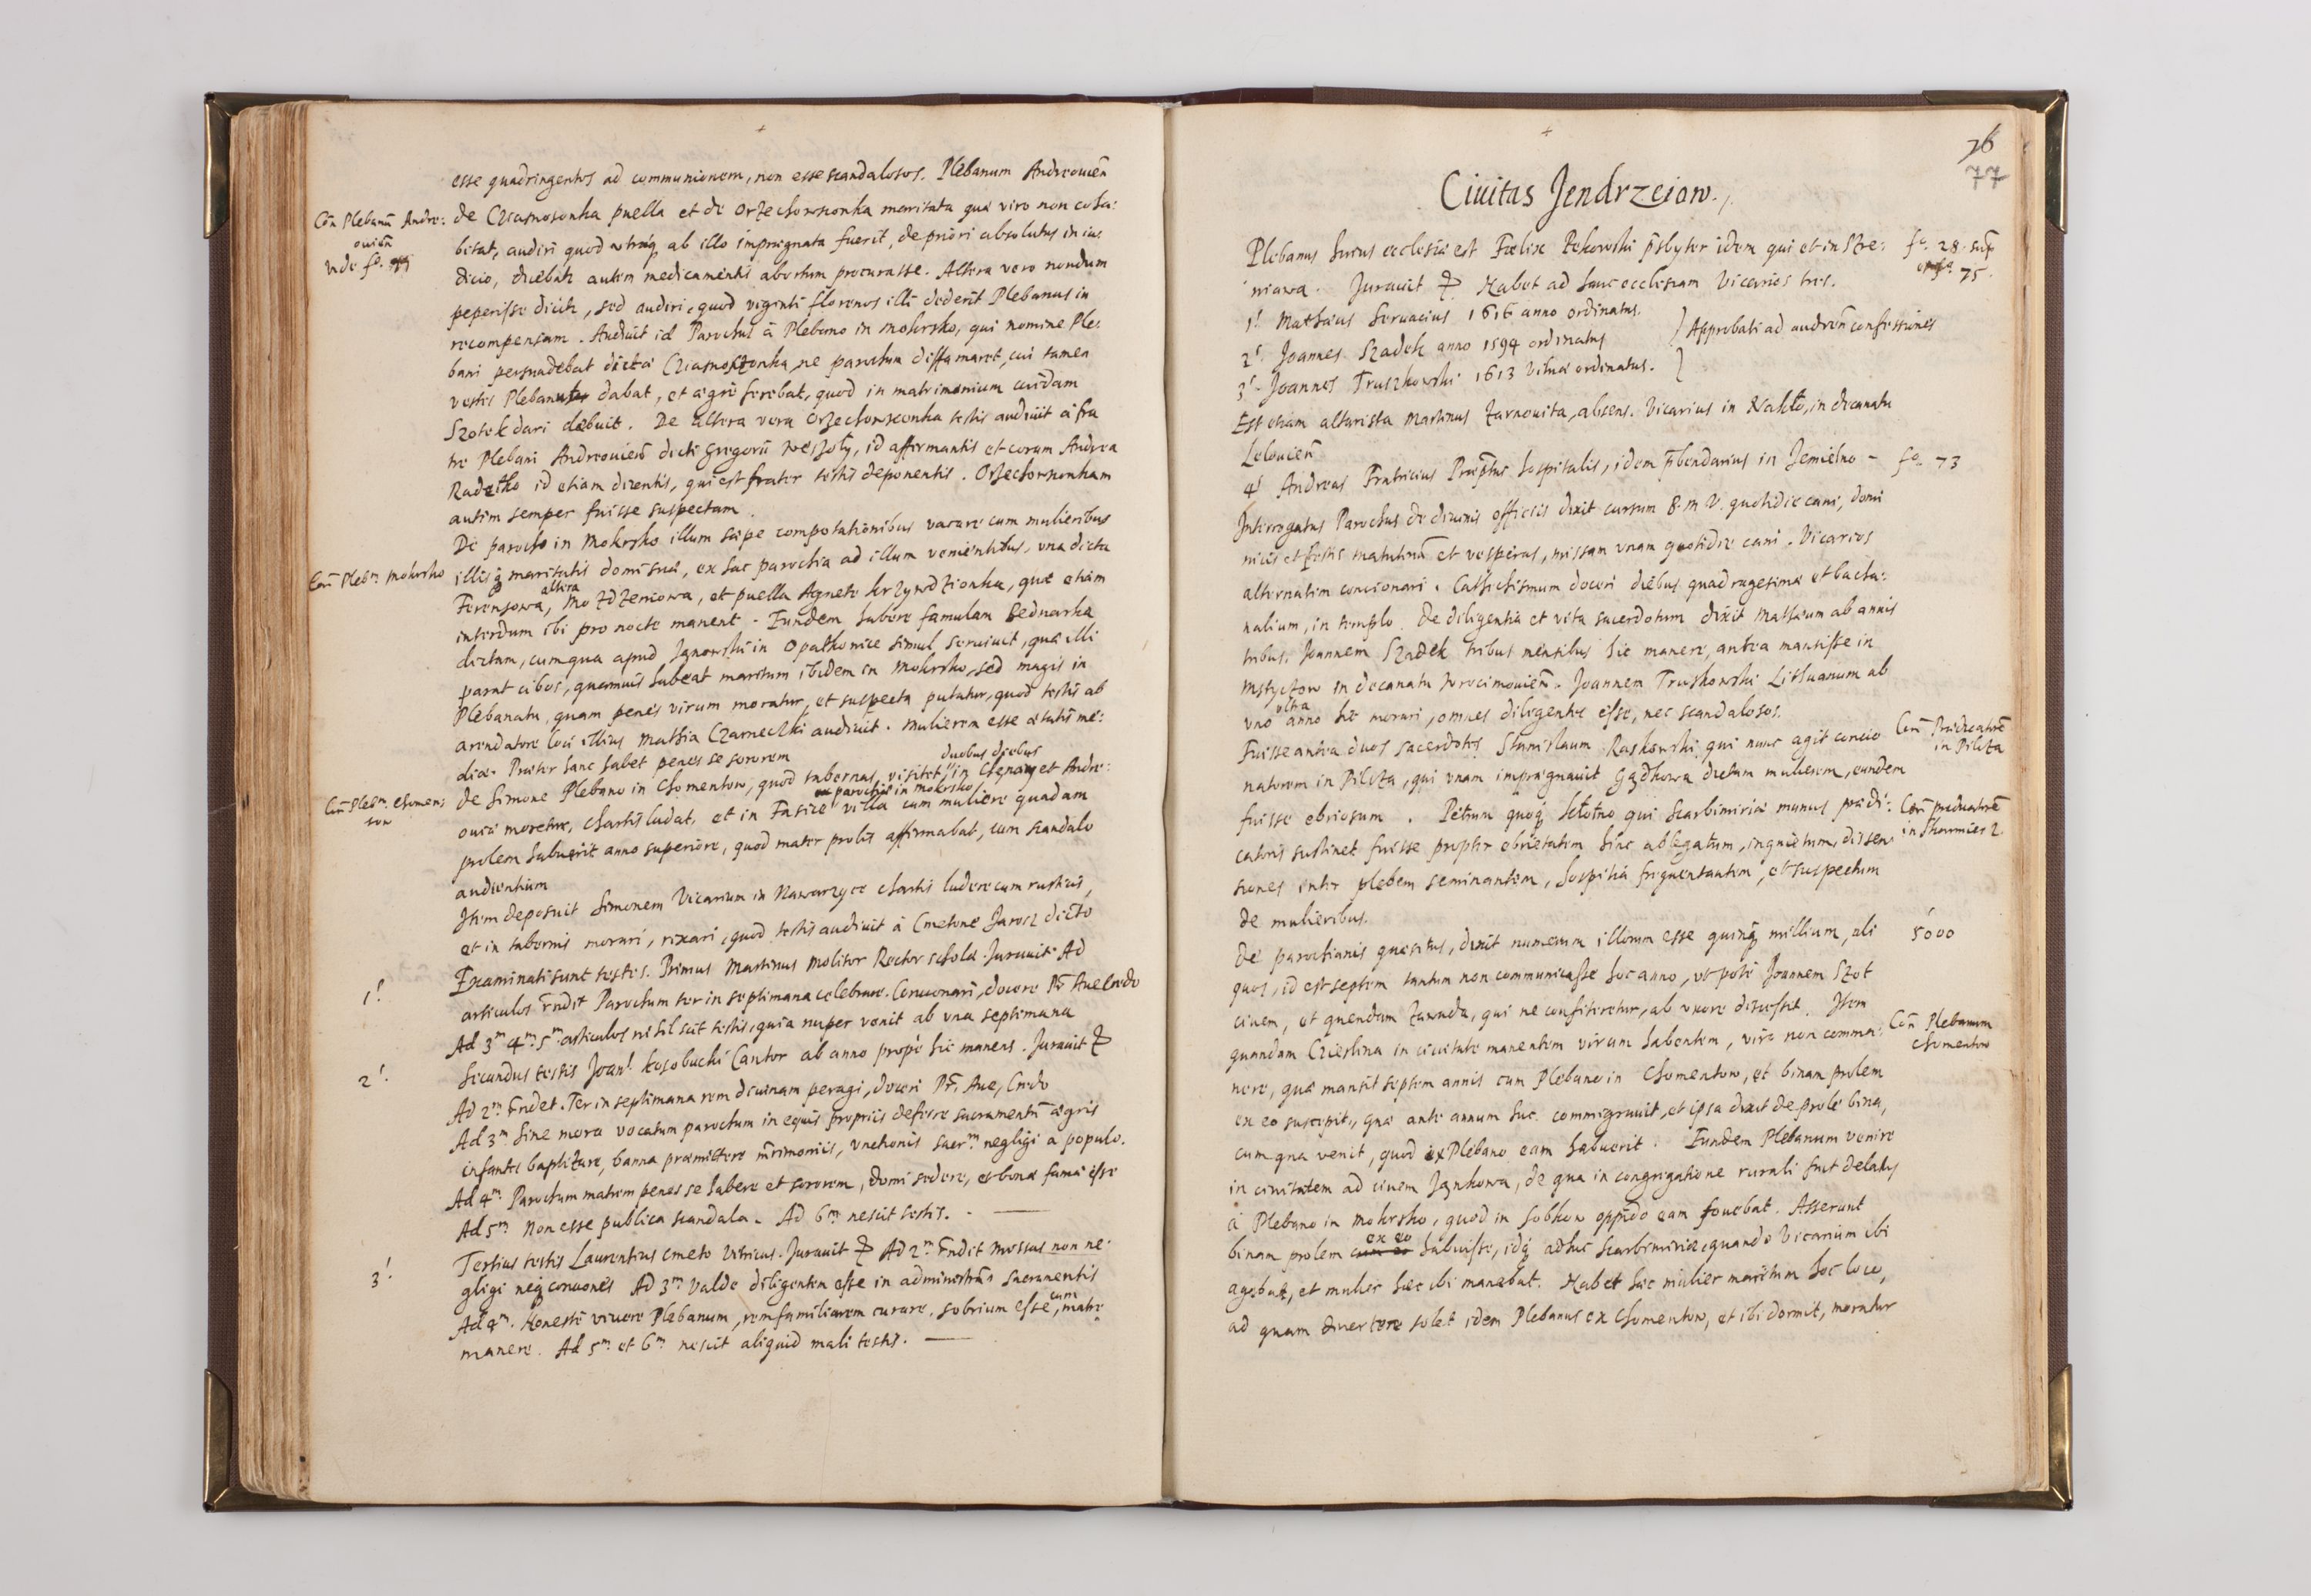 esse quadringentos ad communionem, non esse scandalosos. Plebanum Andreouień
Coñ Plebanũ Andre:
ouień
vide fo.
de Czarnosonka puella et de Orzechowsconka maritata quæ viro non coha:
bitat, audiri quod utraq ab illo imprægnata fuerit, de priori absolutus in iu:
dicio, dicebat autem medicamentis abortum procurasse. Altera vero nondum
peperisse dicit, sed audiri, quod viginti florenos illi dederit Plebanus in
recompensam. Audiuit id Parochus à Plebano in Mokrsko, qui nomine Ple:
bani persuadebat dictæ ne parochum diffamaret, cui tamen
vestes Plebanus dabat, et ægrè ferebat, quod in matrimonium cuidam
Szotek dari debuit. De altera vero Orzechowsconka testis audiuit à fra
tre Plebani Andreouień dicti Gregorii Wesoły, id affirmantis et coram Andrea
Radetko id etiam dicentis, qui est frater testis deponentis. Orzechowsconkam
autem semper fuisse suspectam.
Coñ Plebm Mokrsko
De parocho in Mokrsko illum sæpe compotationibus vacare cum mulieribus
illisq maritatis domi suæ, ex hac parochia ad illum venientibus, una dicta
Ferensowa, altera Mozdzeniowa, et puella Agneta krzywdzionka, quæ etiam
interdum ibi pro nocte manent. Eundem habere famulam Bednarka
dictam, cum qua apud Jgnowski in Opatkowice simul seruiuit, quæ illi
parat cibos, quamuis habeat maritum ibidem in Mokrsko, sed magis in
Plebanatu, quam penes virum moratur, et suspecta putatur, quod testis ab
arendatore loci illius Mathia Czarneczki audiuit. Mulierem esse ætatis me:
diæ. Præter hanc habet penes se sororem
Coñ Plebm Chomen:
tow
De Simone Plebano in Chomentow, quod tabernas visitet, duobus diebus in et Andre:
ouiæ moretur, chartis ludat, et in Lasice villa ex parochia in Mokrsko cum muliere quadam
prolem habuerit anno superiore, quod mater prolis affirmabat, cum scandalo
audientium
Item deposuit Simonem Vicarium in Nawarzyce chartis ludere cum rusticis,
et in tabernis morari, rixari, quod testis audiuit à Cmetone Jarosz dicto
1!
Examinati sunt testes. Primus Martinus Molitor Rector scholæ. Jurauit Ad
articulos r̃ndit Parochum ter in septimana celebrare. Concionari, docere Pr̃ Aue Credo
Ad 3m 4m 5m articulos nihil scit testis, quia nuper venit ab una septimana
2!
Secundus testis Joan! kosobucki Cantor ab anno propè hic manens. Jurauit &
Ad 2m r̃ndet. Ter in septimana rem diuinam peragi, doceri Pr̃. Aue, Credo
Ad 3m Sine mora vocatum parochum in equis propriis deferre sacramentũ ægris
infantes baptizare, banna præmittere mr̃imoniis, unctionis sacrm negligi a populo.
Ad 4m Parochum matrem penes se habere et sororem, domi sedere, et bonæ famæ esse
Ad 5m Non esse publica scandala. Ad 6m nescit testis.
3!
Tertius testis Laurentius Cmeto Vitricus. Jurauit & Ad 2m r̃ndit Messas non ne:
gligi neq conciones Ad 3m Valde diligentem esse in administrãs sacramentis
Ad 4m. Honestè viuere Plebanum, rem familiarem curare, sobrium esse, cum matre
manere. Ad 5m et 6m nescit aliquid mali testis.
76
77
Ciuitas Jendrzeiow.
Plebanus huius ecclesiæ est Fœlix Rekowski p̃sbyter idem qui et in Sze:
fo. 28. sup̃
75.
niawa. Jurauit & Habet ad hanc ecclesiam Vicarios tres.
1! Mathæus Seruacius 1616 anno ordinatus.
2! Joannes Szadek anno 1594 ordinatus
Approbati ad audien̄ confessiones
3! Joannes Truszkowski 1613 Vilnæ ordinatus.
Est etiam altarista Martinus Zarnouita, absens. Vicarius in Nakło, in decanatu
Lelouień
4! Andreas Frutricius Præp̃tus hospitalis, idem p̃bendarius in Jemielno -
fo. 73
Interrogatus Parochus de diuinis officiis dixit cursum B. M. V. quotidie cani, domi
nicis et festis matutinũ et vesperas, missam unam quotidie cani. Vicarios
alternatim concionari. Cathechismum doceri diebus quadragesimæ et bacha:
nalium, in templo. De diligentia et vita sacerdotum dixit Mathæum ab annis
tribus, Joannem Szadek tribus mensibus hic manere, antea mansisse in
Mstyczow in decanatu Wrocimouień. Joannem Truskowski Lithuanum ab
uno ultra anno hc morari, omnes diligentes esse, nec scandalosos.
Coñ Prædicatorẽ
in Pilcza
Fuisse antea duos sacerdotes Stanislaum Raskowski qui nunc agit concio
natorem in Pilcza, qui unam imprægnauit Gądkowa dictam mulierem, eundem
Coñ prædicatorẽ
in Skarmierz
fuisse ebriosum. Petrum quoq qui Scarbimiriæ munus prædi:
catoris sustinet fuisse propter ebrietatem hinc ablegatum, inquietum, dissen:
siones inter plebem seminantem, hospitia frequentantem, et suspectum
de mulieribus.
5000
De parochianis quæsitus, dixit numerum illorum esse quinq millium, ali
quos, id est septem tantum non communicasse hoc anno, ut potè Joannem Szot
ciuem, et quendam Zawada, qui ne confiteretur, ab uxore discessit. Item
Coñ Plebanum
Chomentow
quandam Czieslina in ciuitate manentem virum habentem, viro non commu:
nere, quæ mansit septem annis cum Plebano in Chomentow, et binam prolem
ex eo suscepit, quæ ante annum huc commigrauit, et ipsa dixit de prole bina,
cum qua venit, quod ex Plebano eam habuerit. Eundem Plebanum venire
in ciuitatem ad ciuem Jgnkowa, de qua in congregatione rurali fuit delatus
à Plebano in Mokrsko, quod in Sobkow oppido eam fouebat. Asserunt
binam prolem ex eo habuisse, idq adhuc Scarbimiriæ, quando Vicarium ibi
agebat, et mulier hæc ibi manebat. Habet hæc mulier maritum hoc loco,
ad quam diuertere solet idem Plebanus ex Chomentow, et ibi dormit, moratur